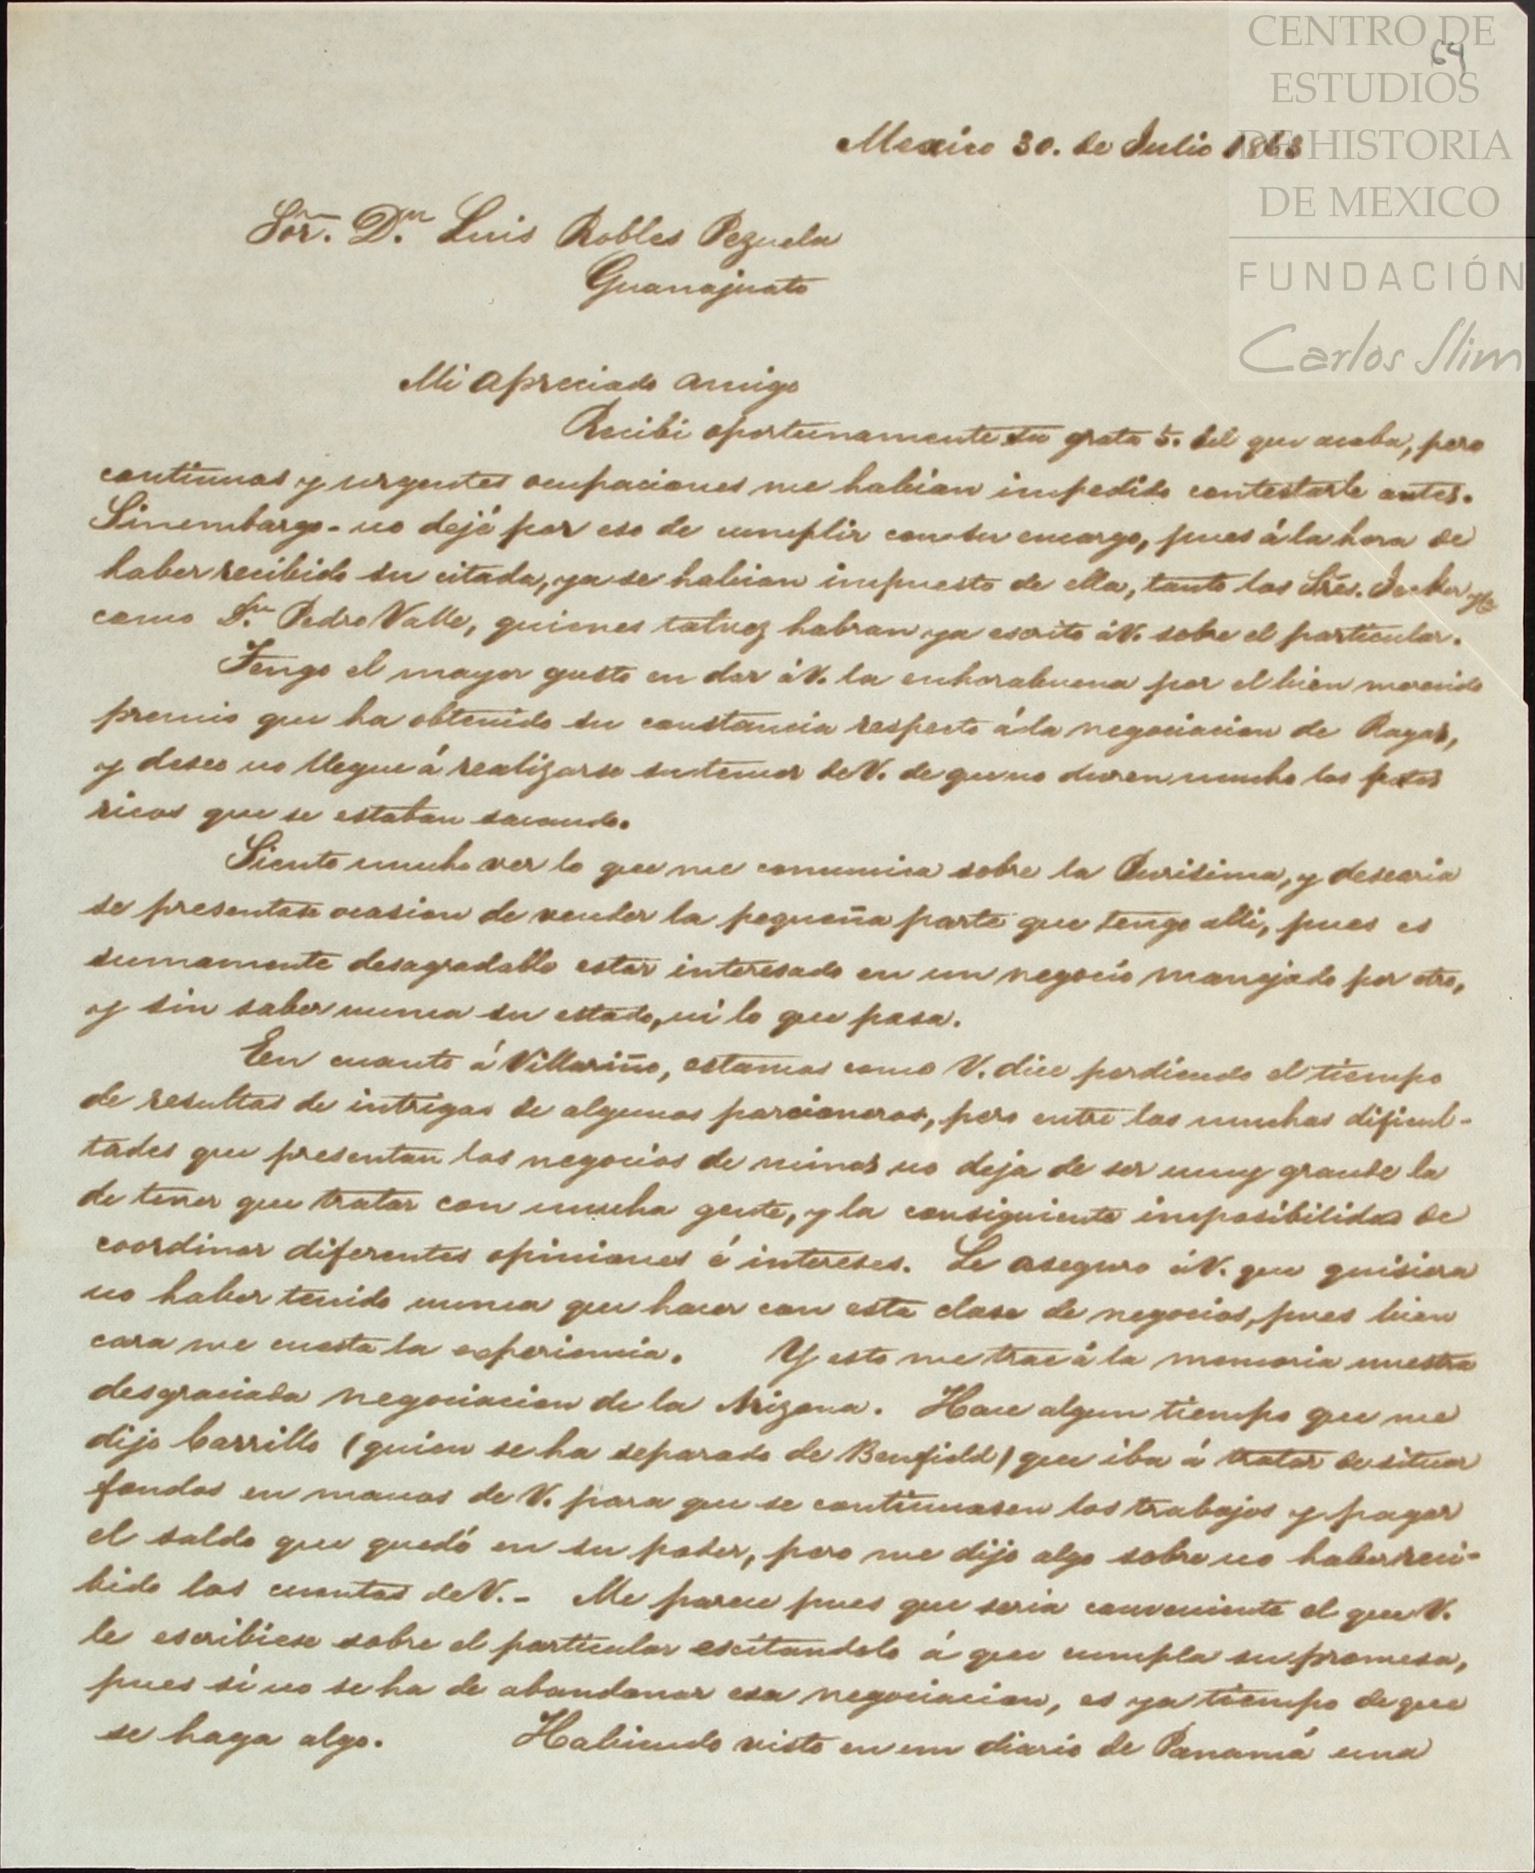 CENTRO DE
ESTUDIOS
DE HISTORIA
DE MEXICO
FUNDACIÓN
Carlos Slim
64
Mexico 30. de Julio 1863
Sor. Dn. Luis Robles Pezuela
Guanajuato
Mi apreciado amigo
Recibi oportunamente su grata 5. del que acaba, pero
continuas y urgentes ocupaciones me habian impedido contestarle antes.
Sinembargo no dejé por eso de cumplir con su encargo, pues á la hora de
haber recibido su citada, ya se habian impuesto de ella, tanto los Sres. Jecker y Ca
como Dn. Pedro Valle, quienes talvez habran ya escrito á V. sobre el particular.
Tengo el mayor gusto en dar á V. la enhorabuena por el bien merecido
premio que ha obtenido su constancia respecto á la negociacion de Rayas,
y deseo no llegue á realizarse su temor de V. de que no duren mucho los
ricos que se estaban sacando.
Siento mucho ver lo que me comunica sobre la Purisima, y desearia
se presentase ocasion de vender la pequeña parte que tengo alli, pues es
sumamente desagradable estar interesado en un negocio manejado por otro,
y sin saber nunca su estado, ni lo que pasa.
En cuanto á Villariño, estamos como V. dice perdiendo el tiempo
de resultas de intrigas de algunos parcioneros, pero entre las muchas dificul-
tades que presentan los negocios de minas no deja de ser muy grande la
de tener que tratar con mucha gente, y la consiguiente imposibilidad de
coordinar diferentes opiniones é intereses. Le aseguro á V. que quisiera
no haber tenido nunca que hacer con esta clase de negocios, pues bien
cara me cuesta la experiencia. Y esto me trae á la memoria nuestra
desgraciada negociacion de la Arizona. Hace algun tiempo que me
dijo Carrillo (quien se ha separado de Benfield) que iba á tratar de situar
fondos en manos de V. para que se continuasen los trabajos y pagar
el saldo que quedó en su poder, pero me dijo algo sobre no haber reci-
bido las cuentas de V. - Me parece pues que seria conveniente el que V.
le escribiese sobre el particular escitandolo á que cumpla su promesa,
pues si no se ha de abandonar esa negociacion, es ya tiempo de que
se haga algo. Habiendo visto en un diario de Panamá una